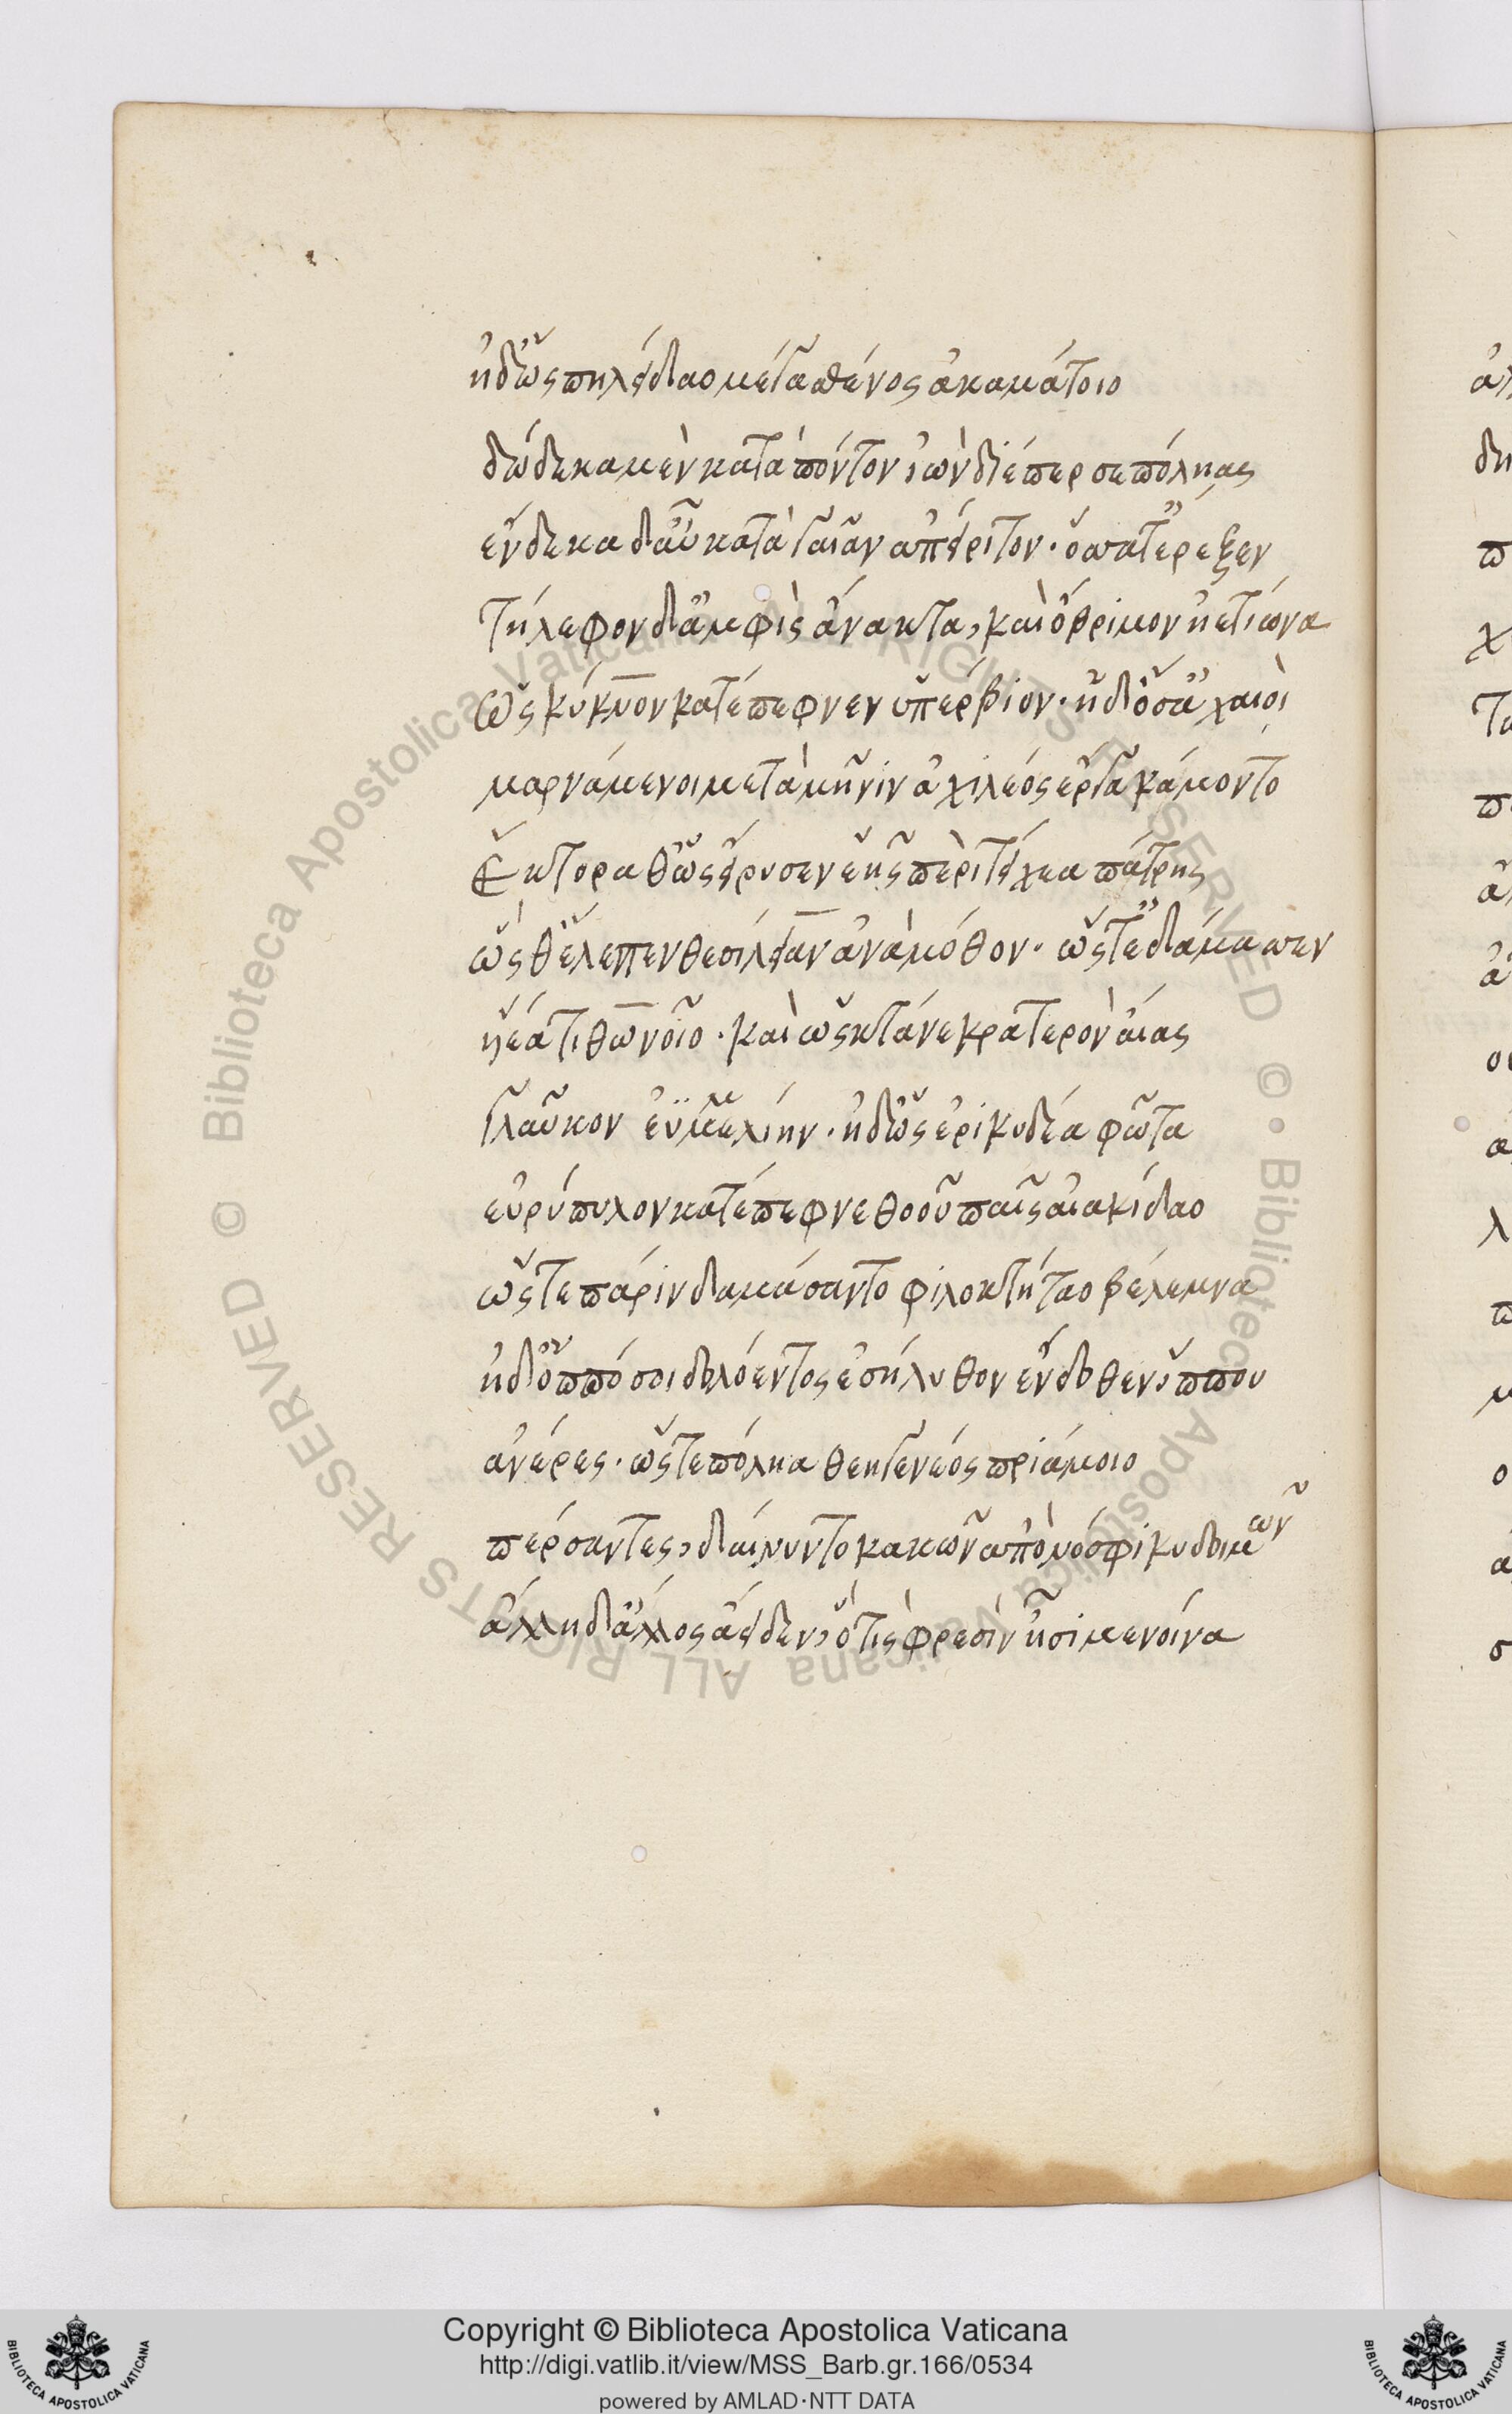 ἠδ' ὡς πηλείδαο μέγα σθένος ἀκαμάτοιο
δώδεκα μὲν κατὰ πόντον ἰὼν διέπερσε πόληας
ἕνδεκα δ' αὖ κατὰ γαῖαν ἀπείριτον· ὅσσά τ' ἔρεξεν
τήλεφον δ' ἀμφὶς ἄνακτα, καὶ ὄβριμον ἠετίωνα
ὥς κύκνον κατέπεφνεν ὑπέρβιον· ἠδ' ὅσ' ἀχαιοὶ
μαρνάμενοι μετὰ μῆνιν ἀχιλέος ἔργα κάμοντο
Ἕκτορα θ' ὡς εἴρυσεν ἑῆς περὶ τείχεα πάτρης
ὥς θ' ἕλε πενθεσίλειαν ἀνὰ μόθον· ὥς τ' ἐδάμασσεν
ἡῆα τιθωνοῖο· καὶ ὡς κτάνε κρατερὸν αἴας
γλαῦκον ἐϋμμελίην· ἠδ' ὡς ἐρικυδέα φῶτα
εὐρύπυλον κατέπεφνε θοοῦ παῖς αἰακίδαο
ὥς τε πάριν δαμάσαντο φιλοκτήταο βέλεμνα
ἠδ' ὁππόσοι δολόεντος ἐσήλυθον ἔνδοθεν ἵππου
ἀνέρες· ὥς τε πόληα θεηγενέος πριάμοιο
πέρσαντες, δαίνυντο κακῶν ἀπὸ νόσφι κυδοιμῶν
ἄλλη δ' ἄλλος ἄειδεν, ὅτις φρεσὶν ᾗσι μενοίνα
Copyright © Biblioteca Apostolica Vaticana
http://digi.vatlib.it/view/MSS_Barb.gr.166/0534
powered by AMLAD·NTT DATA